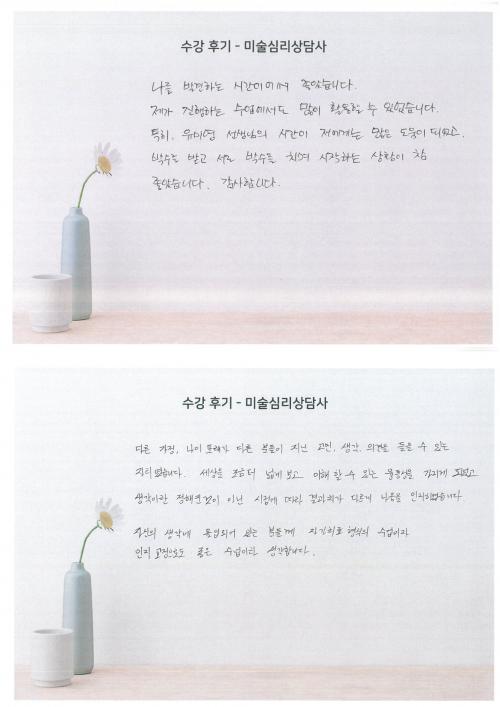 수강 후기 - 미술심리상담사
나를 발견하는 시간이어서 좋았습니다.
제가 진행하는 수업에서도 많이 활용할 수 있었습니다.
특히, 유미영 선생님의 시간이 저에게는 많은 도움이 되었고,
박수를 받고 서로 박수를 치며 시작하는 상황이 참
좋았습니다. 감사합니다.
수강 후기 - 미술심리상담사
다른 가정, 나이 또래가 다른 분들이 지닌 고민, 생각, 의견을 들을 수 있는
자리였습니다. 세상을 조금 더 넓게 보고 이해 할 수 있는 융통성을 가지게 되었고
생각이란 정해진 것이 아닌 시점에 따라 결과치가 다르게 나옴을 인지하였습니다.
자신의 생각에 몰입되어 있는 분들께 자기치료 형식의 수업이자
인지 교정으로도 좋은 수업이라 생각합니다.